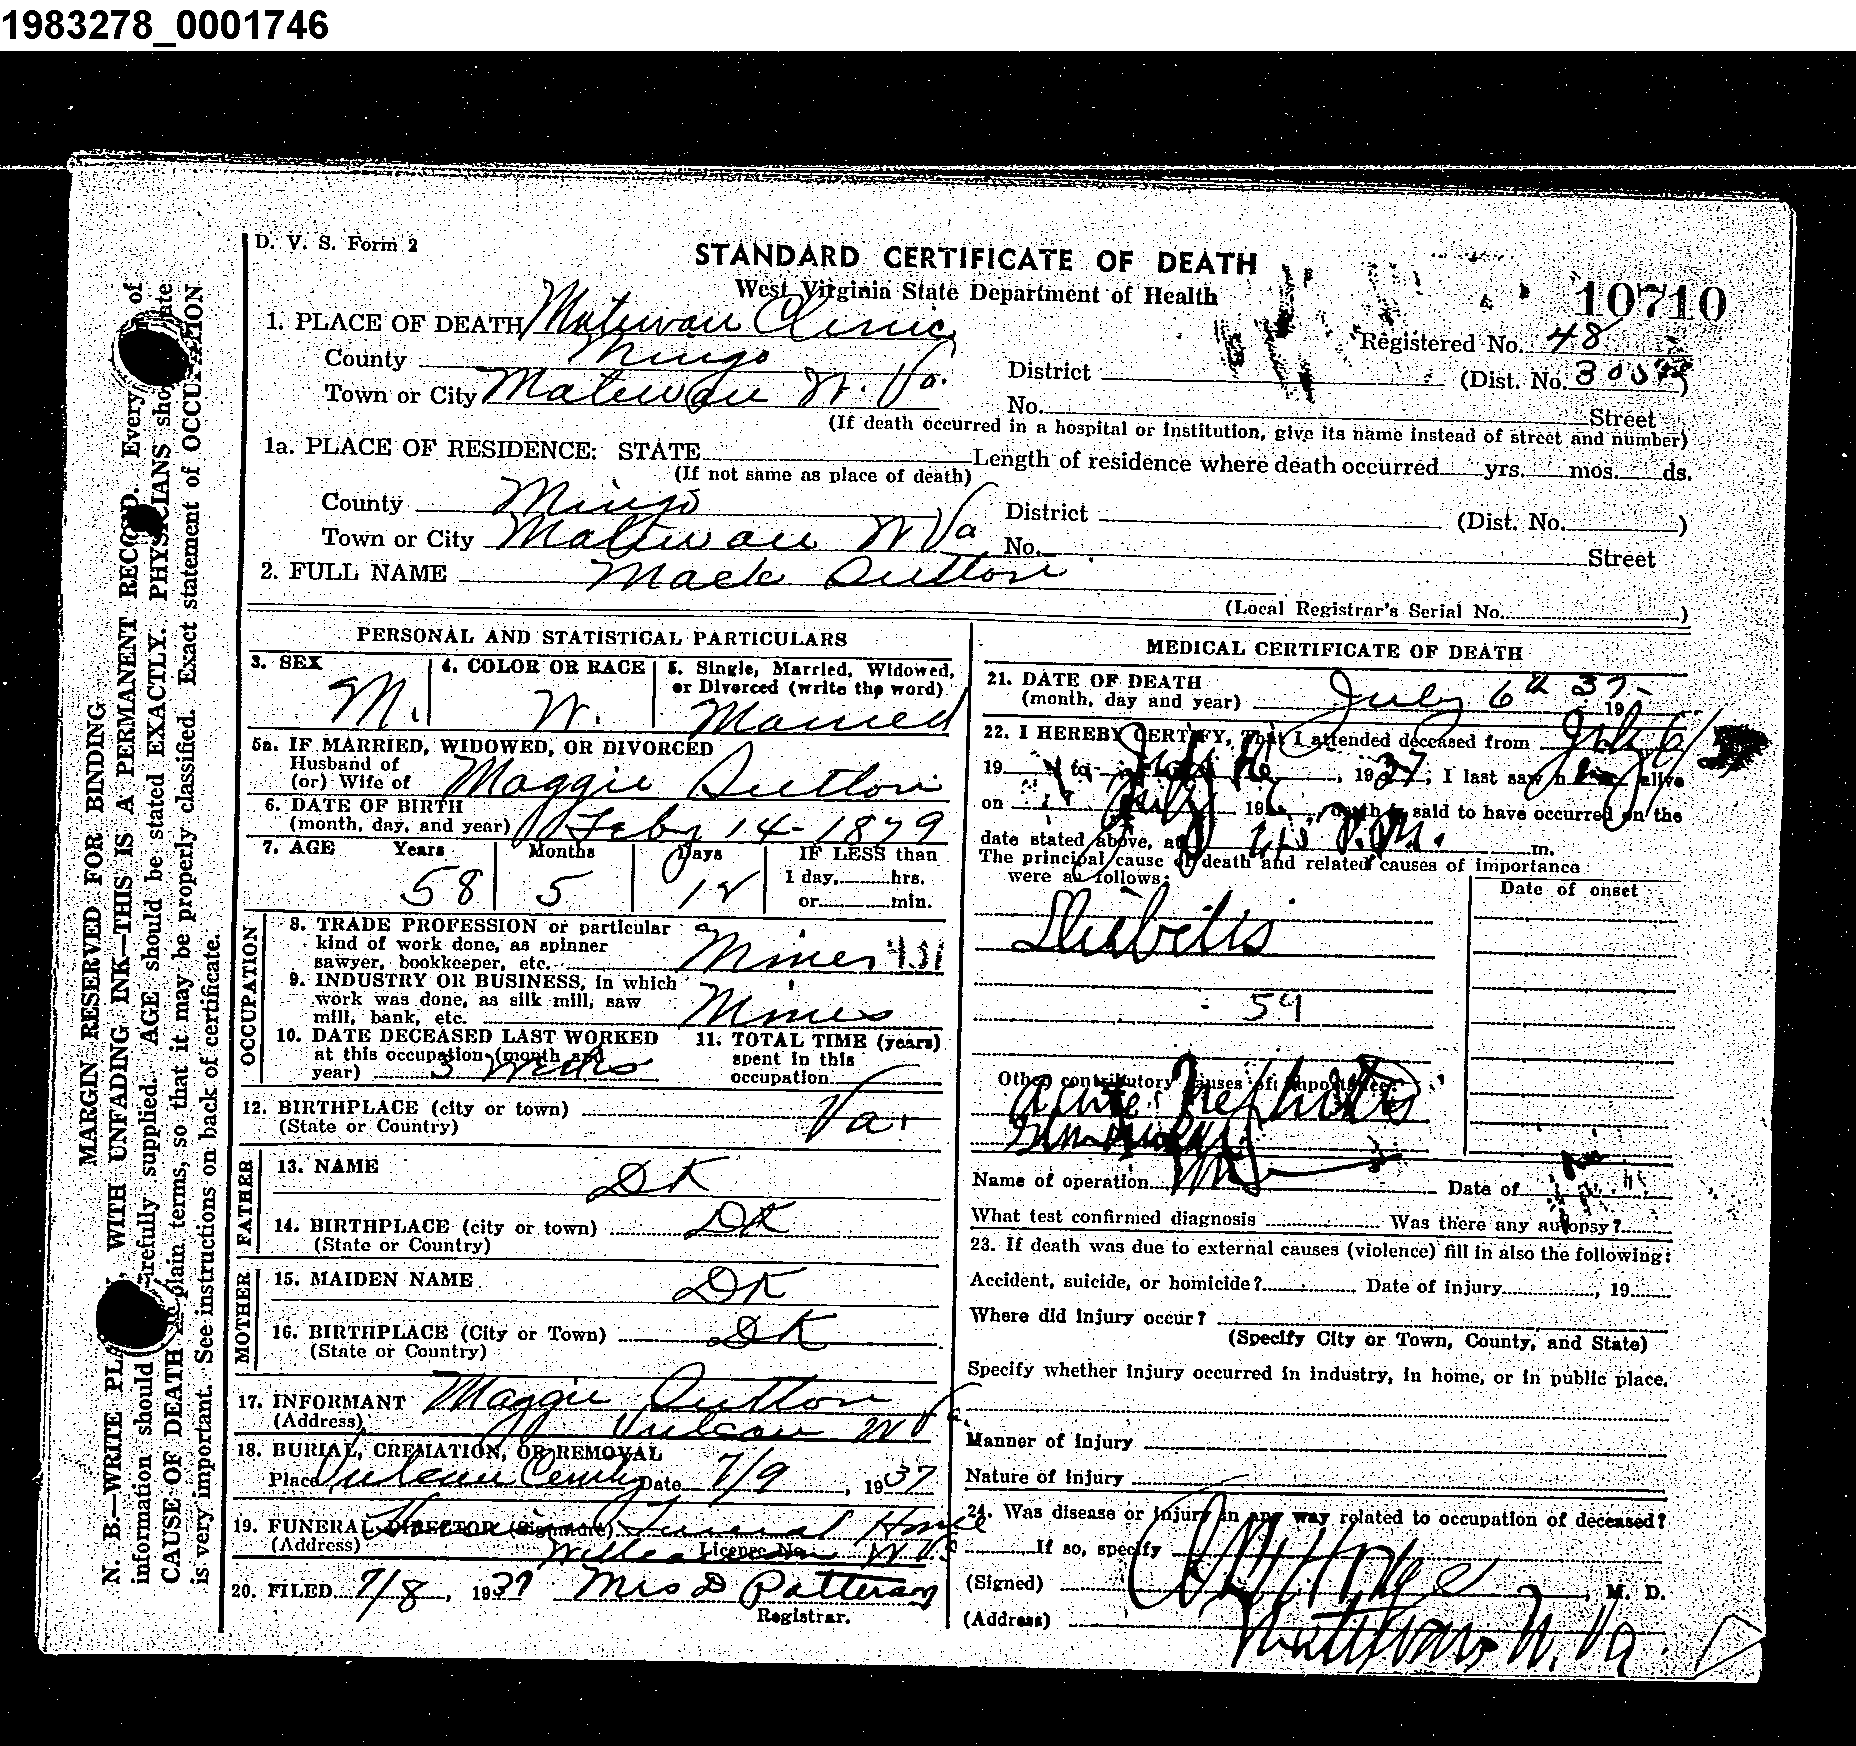 1983278_0001746
D. V. S. Form 2
STANDARD CERTIFICATE OF DEATH
West Virginia State Department of Health
10710
1. PLACE OF DEATH Matewan Clinic
Registered No. 48
County Mingo
District (Dist. No. )
Town or City Matewan W. Va.
No. Street
(If death occurred in a hospital or institution, give its name instead of street and number)
1a. PLACE OF RESIDENCE: STATE
Length of residence where death occurred yrs. mos. ds.
(If not same as place of death)
County Mingo
District (Dist. No. )
Town or City Matewan W Va
No. Street
2. FULL NAME Mack Sutton
(Local Registrar's Serial No. )
PERSONAL AND STATISTICAL PARTICULARS
3. SEX M.
4. COLOR OR RACE W.
5. Single, Married, Widowed, or Divorced (write the word) Married
5a. IF MARRIED, WIDOWED, OR DIVORCED
Husband of
(or) Wife of Maggie Sutton
6. DATE OF BIRTH
(month, day, and year) Feby 14-1879
7. AGE Years Months Days IF LESS than
58 5 1 day, hrs.
or min.
OCCUPATION
8. TRADE PROFESSION or particular
kind of work done, as spinner
sawyer, bookkeeper, etc. Miner
9. INDUSTRY OR BUSINESS, in which
work was done, as silk mill, saw
mill, bank, etc. Mines
10. DATE DECEASED LAST WORKED
at this occupation (month and
year) 3 Weeks
11. TOTAL TIME (years)
spent in this
occupation
12. BIRTHPLACE (city or town)
(State or Country) Va.
FATHER
13. NAME DK
14. BIRTHPLACE (city or town) DK
(State or Country)
MOTHER
15. MAIDEN NAME DK
16. BIRTHPLACE (City or Town) DK
(State or Country)
17. INFORMANT Maggie Sutton
(Address) Vulcan W Va.
18. BURIAL, CREMATION, OR REMOVAL
Place Vulcan Date 7/9, 1937
19. FUNERAL DIRECTOR (Signature) Funeral Home
(Address) License No. Williamson W Va
20. FILED 7/8, 1937 Mrs D Patterson
Registrar.
MEDICAL CERTIFICATE OF DEATH
21. DATE OF DEATH
(month, day and year) July 6th 1937
22. I HEREBY CERTIFY, That I attended deceased from July 6
19 to July, 1937; I last saw h alive
on July 19, death is said to have occurred on the
date stated above, at P.M. m.
The principal cause of death and related causes of importance
were as follows:
Date of onset
Diabetis
59
Other contributory causes of importance:
Acute Nephritis
Name of operation Date of
What test confirmed diagnosis Was there any autopsy?
23. If death was due to external causes (violence) fill in also the following:
Accident, suicide, or homicide? Date of injury , 19
Where did injury occur?
(Specify City or Town, County, and State)
Specify whether injury occurred in industry, in home, or in public place.
Manner of injury
Nature of injury
24. Was disease or injury in any way related to occupation of deceased?
If so, specify
(Signed) , M. D.
(Address) Matewan W. Va.
MARGIN RESERVED FOR BINDING
WITH UNFADING INK—THIS IS A PERMANENT RECORD. Every of
information should refully supplied. AGE should be stated EXACTLY. PHYSICIANS
CAUSE OF DEATH plain terms, so that it may be properly classified. Exact statement of OCCUPATION
is very important. See instructions on back of certificate.